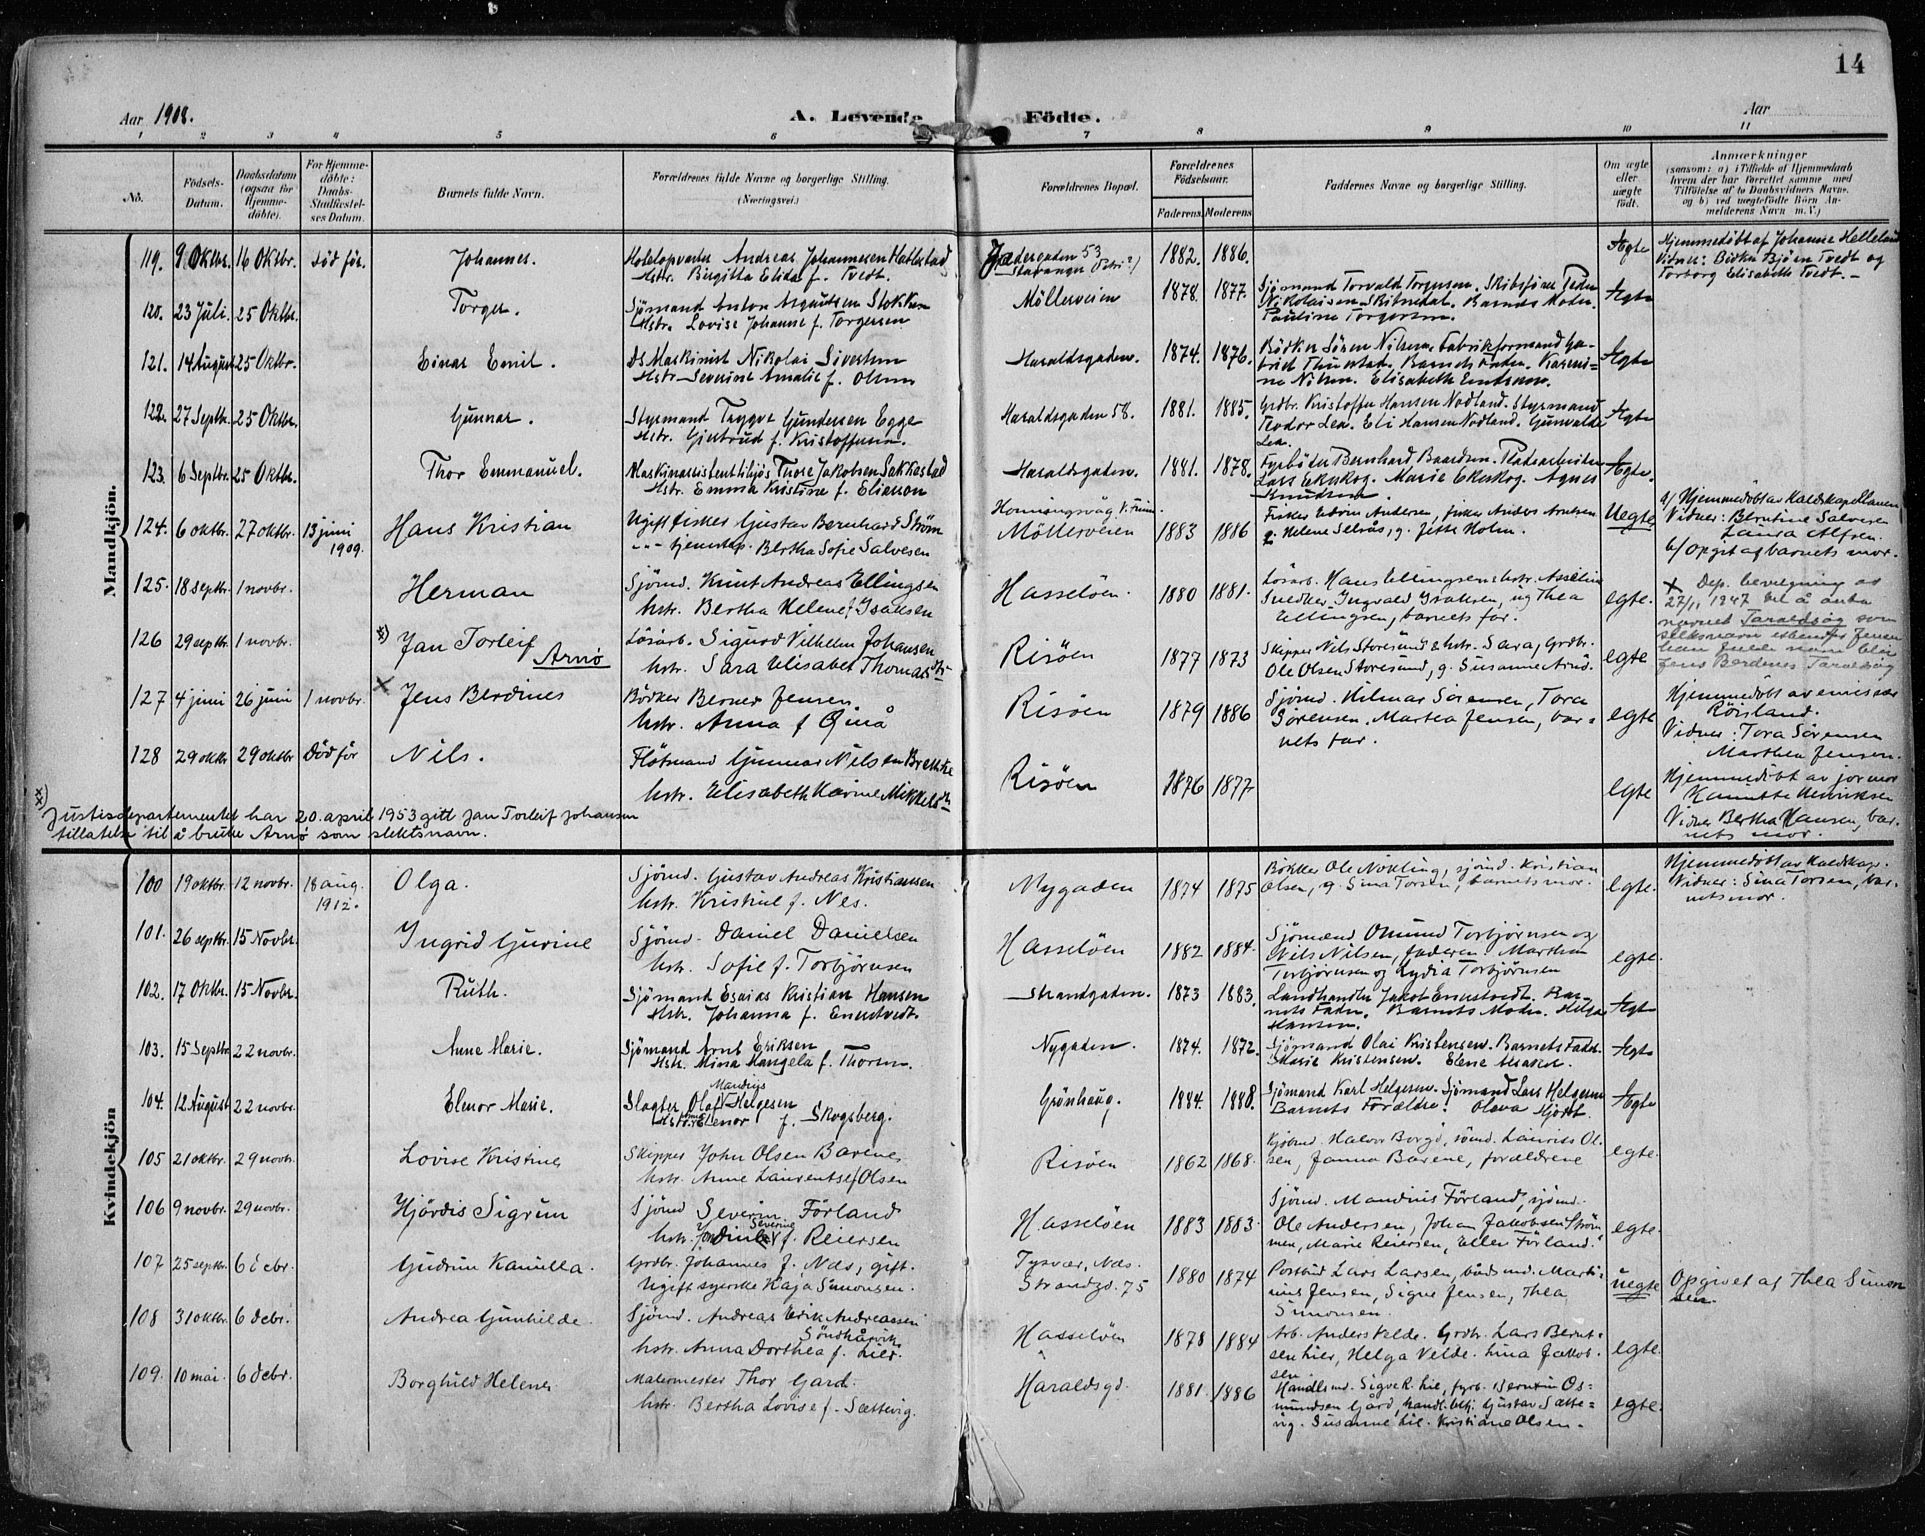 14
Aar 1908. A. Levende Födte. Aar
1 2 3 4 5 6 7 8 9 10 11
No. Födsels-Datum. Daabsdatum (ogsaa for Hjemmedöbte). For Hjemmedöbte: Daabs-Stadfæstelses Datum. Barnets fulde Navn. Forældrenes fulde Navne og borgerlige Stilling. (Næringsvei.) Forældrenes Bopæl. Forældrenes Födselsaar. Faderens. Moderens. Faddernes Navne og borgerlige Stilling. Om ægte eller uægte födt. Anmærkninger (saasom: a) i Tilfælde af Hjemmedaab hvem der har forrettet samme med Tilföielse af to Daabsvidners Navne, og b) ved uægtefödte Börn Anmelderens Navn m. V.)
Mandkjön.
119. 9 Oktbr. 16 Oktbr. död før. Johannes. Hotelopvarter Andreas Johannesen Hallestad
Hstr. Birgitta Elida f. Tvedt. Pedersgaden 53 Stavanger (Petri?) 1882. 1886. Ægte Hjemmedøbt af Johanne Helleland
Vidner: Bödker Björn Tvedt og
Torborg Elisabeth Tvedt. –
120. 23 Juli. 25 Oktbr. Torger. Sjömand Anton Asgautsen Stokken
Hstr. Lovise Johanne f. Torgersen Möllerveien 1878. 1877. Sjömand Torvald Torgersen. Skibsförer Peder
Nikolaisen Skibnedal. Barnets Moder.
Pauline Torgersen. Ægte
121. 14 August 25 Oktbr. Einar Emil. Ds Maskinist Nikolai Sivertsen
Hstr. Severine Amalie f. Olsen Haraldsgaden. 1874. 1876. Bödker Sören Nilsen. Fabrikformand Gabriel Thuestad. Barnets Fader. Karenine Nilsen. Elisabeth Endresen. Ægte
122. 27 Septbr. 25 Oktbr. Gunnar. Styrmand Trygve Gundersen Egge
Hstr. Gjertrud f. Kristoffersen. Haraldsgaden 58. 1881. 1885. Grdbr. Kristoffer Hansen Nodland. Styrmand
Teodor Lea. Eli Hansen Nodland. Gunvalda
Lea. Ægte
123. 6 Septbr. 25 Oktbr. Thor Emmanuel. Maskinassistent tilsjøs Thore Jakobsen Sakkastad
Hstr. Emma Kristine f. Eliasson Haraldsgaden. 1881. 1878. Fyrböter Bernhard Baardsen. Pladsarbeider
Lars Ekeskog. Marie Ekeskog. Agnes
Knudsen. Ægte.
124. 6 oktbr. 27 oktbr. 13 juni 1909. Hans Kristian Ugift fisker Gustav Bernhard Strøm
" – " tjenestep. Bertha Sofie Salvesen Honningsvåg
Möllerveien 1883 1886 Fisker Edvin Andersen, fisker Anders Arntsen
g. Helene Selvås, g. Jette Holm. Uegte a/ Hjemmedöbt av
Vidner: Berntine Salvesen
Laura Alfsen.
b/ Opgit af barnets mor.
125. 18 septbr. 1 novbr. Herman Sjömd. Knut Andreas Ellingsen
hstr. Bertha Helene f. Isaksen Hasselöen. 1880 1881. Løsarb. Hans Ellingsen & hstr. Asseline
Snedker Ingvald Isaksen, ug Thea
Ellingsen, barnets far. egte. × Dep. bevilgning av
27/11 1947 til å anta
navnet Taraldsøy som
slektsnavn istenfor Jensen
han fulde navn blir
Jens Berdenes Taraldsøy
126 29 septbr. 1 novbr. xx) Jan Torleif
Arnø Løsarb. Sigurd Vilhelm Johansen
hstr. Sara Elisabet Thomasdtr. Risöen 1877 1873 Skipper Nils Storesund & hstr. Sara, Grdbr.
Ole Olsen Storesund, g. Susanne Arnø. egte
127 4 juni 26 juni 1 novbr. × Jens Berdines Bödker Berner Jensen
hstr. Anna f Qinå Risöen 1879 1886 Sjömd. Hilmar Sørensen, Tora
Sørensen. Martha Jensen, barnets far. egte Hjemmedöbt av emissær
Röisland.
Vidner: Tora Sørensen
Marthea Jensen.
128 29 oktbr 29 oktbr Död för Nils. Flötmand Gunnar Nilsen
hstr. Elisabeth Karine Mikkelsdtr Risöen 1876 1877 egte Hjemmedöbt av jormor
Henriksen
Vidner Bertha Hansen, barnets mor.
xx) Justisdepartementet har 20. april 1953 gitt Jan Torleif Johansen
tillatelse til å bruke Arnø som slektsnavn.
Kvindekjön
100 19 oktbr. 12 novbr. 18 aug. 1912. Olga. Sjömd. Gustav Andreas Kristiansen
hstr. Kristine f. Nes. Nygaden 1874 1875 Bökker Ole Nøkling, sjömd. Kristian
Olsen, g. Sina Torsen, barnets mor. egte. Hjemmedöbt av
Vidner: Sina Torsen, barnets mor.
101. 26 septbr. 15 Novbr. Ingrid Gurine Sjömd. Daniel Danielsen
hstr. Sofie f. Torbjörnsen Hasselöen 1882 1884. Sjömænd Omund Torbjörnsen og
Nils Nilsen, faderen. Marthea
Torbjörnsen og Lydia Torbjörnsen egte.
102. 17 Oktbr. 15 Novbr. Ruth. Sjömand Esaias Kristian Hansen
Hstr. Johanna f. Enerstvedt. Strandgaden. 1873 1883. Landhandler Jakob Enerstvedt. Barnets Fader. Barnets Moder. Helga
Hansen. Ægte
103. 15 Septbr. 22 novbr. Anne Marie. Sjömand Arnt Eriksen
Hstr. Mina Mangela f. Thorsen. Nygaden. 1874. 1872. Sjömand Olai Kristensen. Barnets Fader.
Marie Kristensen. Elene Ægte
104. 12 August 22 novbr. Elenor Marie. Slagter Olaf Mandrup Helgesen
Hstr. Elenor f. Skogsberg. Grönhaug. 1884. 1888. Sjömand Karl Helgesen. Sjömand Lars Helgesen
Barnets Forældre. Olava Hjort. Ægte
105 21 oktbr. 29 novbr. Lovise Kristine Skipper John Olsen Barene
hstr. Anne Laurentse f Olsen Risöen 1862 1868. Kjöbmd. Halvor Borgö, sömd. Laurits Olsen, Janna Barene, forældrene egte.
106 9 novbr. 29 novbr. Hjördis Sigrun Sjömd Severin Förland
hstr. Severine f. Reiersen Hasselöen 1883 1883. Sjömd. Mandius Förland, sjömd.
Ole Andersen, Johan Jakobsen Strömmen, Marie Reiersen, Ellen Förland. egte.
107 25 septbr 6 debr. Gudrun Kamilla. Grdbr. Johannes J. Næs, gift.
Ugift syerske Kaja Simonsen. Tysvær, Næs.
Strandgd. 75 1880 1874 Postbud Lars Larsen, bådsmd. Martinius Jensen, Signe Jensen, Thea
Simonsen. uegte Opgivet af Thea Simonsen.
108 31 oktbr 6 debr. Andrea Gunhilde. Sjömd. Andreas Erik Andreassen Söndhåvik
hstr. Anna Dorthea f. Lier. Hasselöen 1878 1884 Arb. Anders Velde. Grdbr. Lars Berntsen Lier, Helga Velde. Lina Jakobsen. egte.
109. 10 mai. 6 debr. Borghild Helene. Malermester Thor Gard.
hstr. Bertha Lovise f. Sættevig. Haraldsgd. 1881. 1886 Handlsmd. Sigve R. Lie, fyrb. Berntin Osmundsen Gård, handl.betj. Gustav Sættevig. Susanne Lie. Kristiane Olsen. egte.